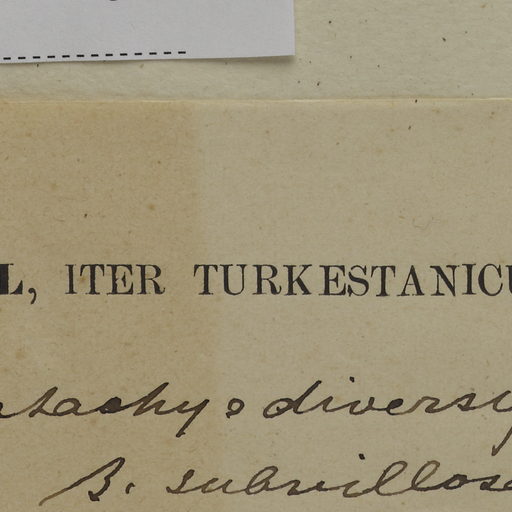 L, ITER TURKESTANICU
stachys diversy
β. subvillosa